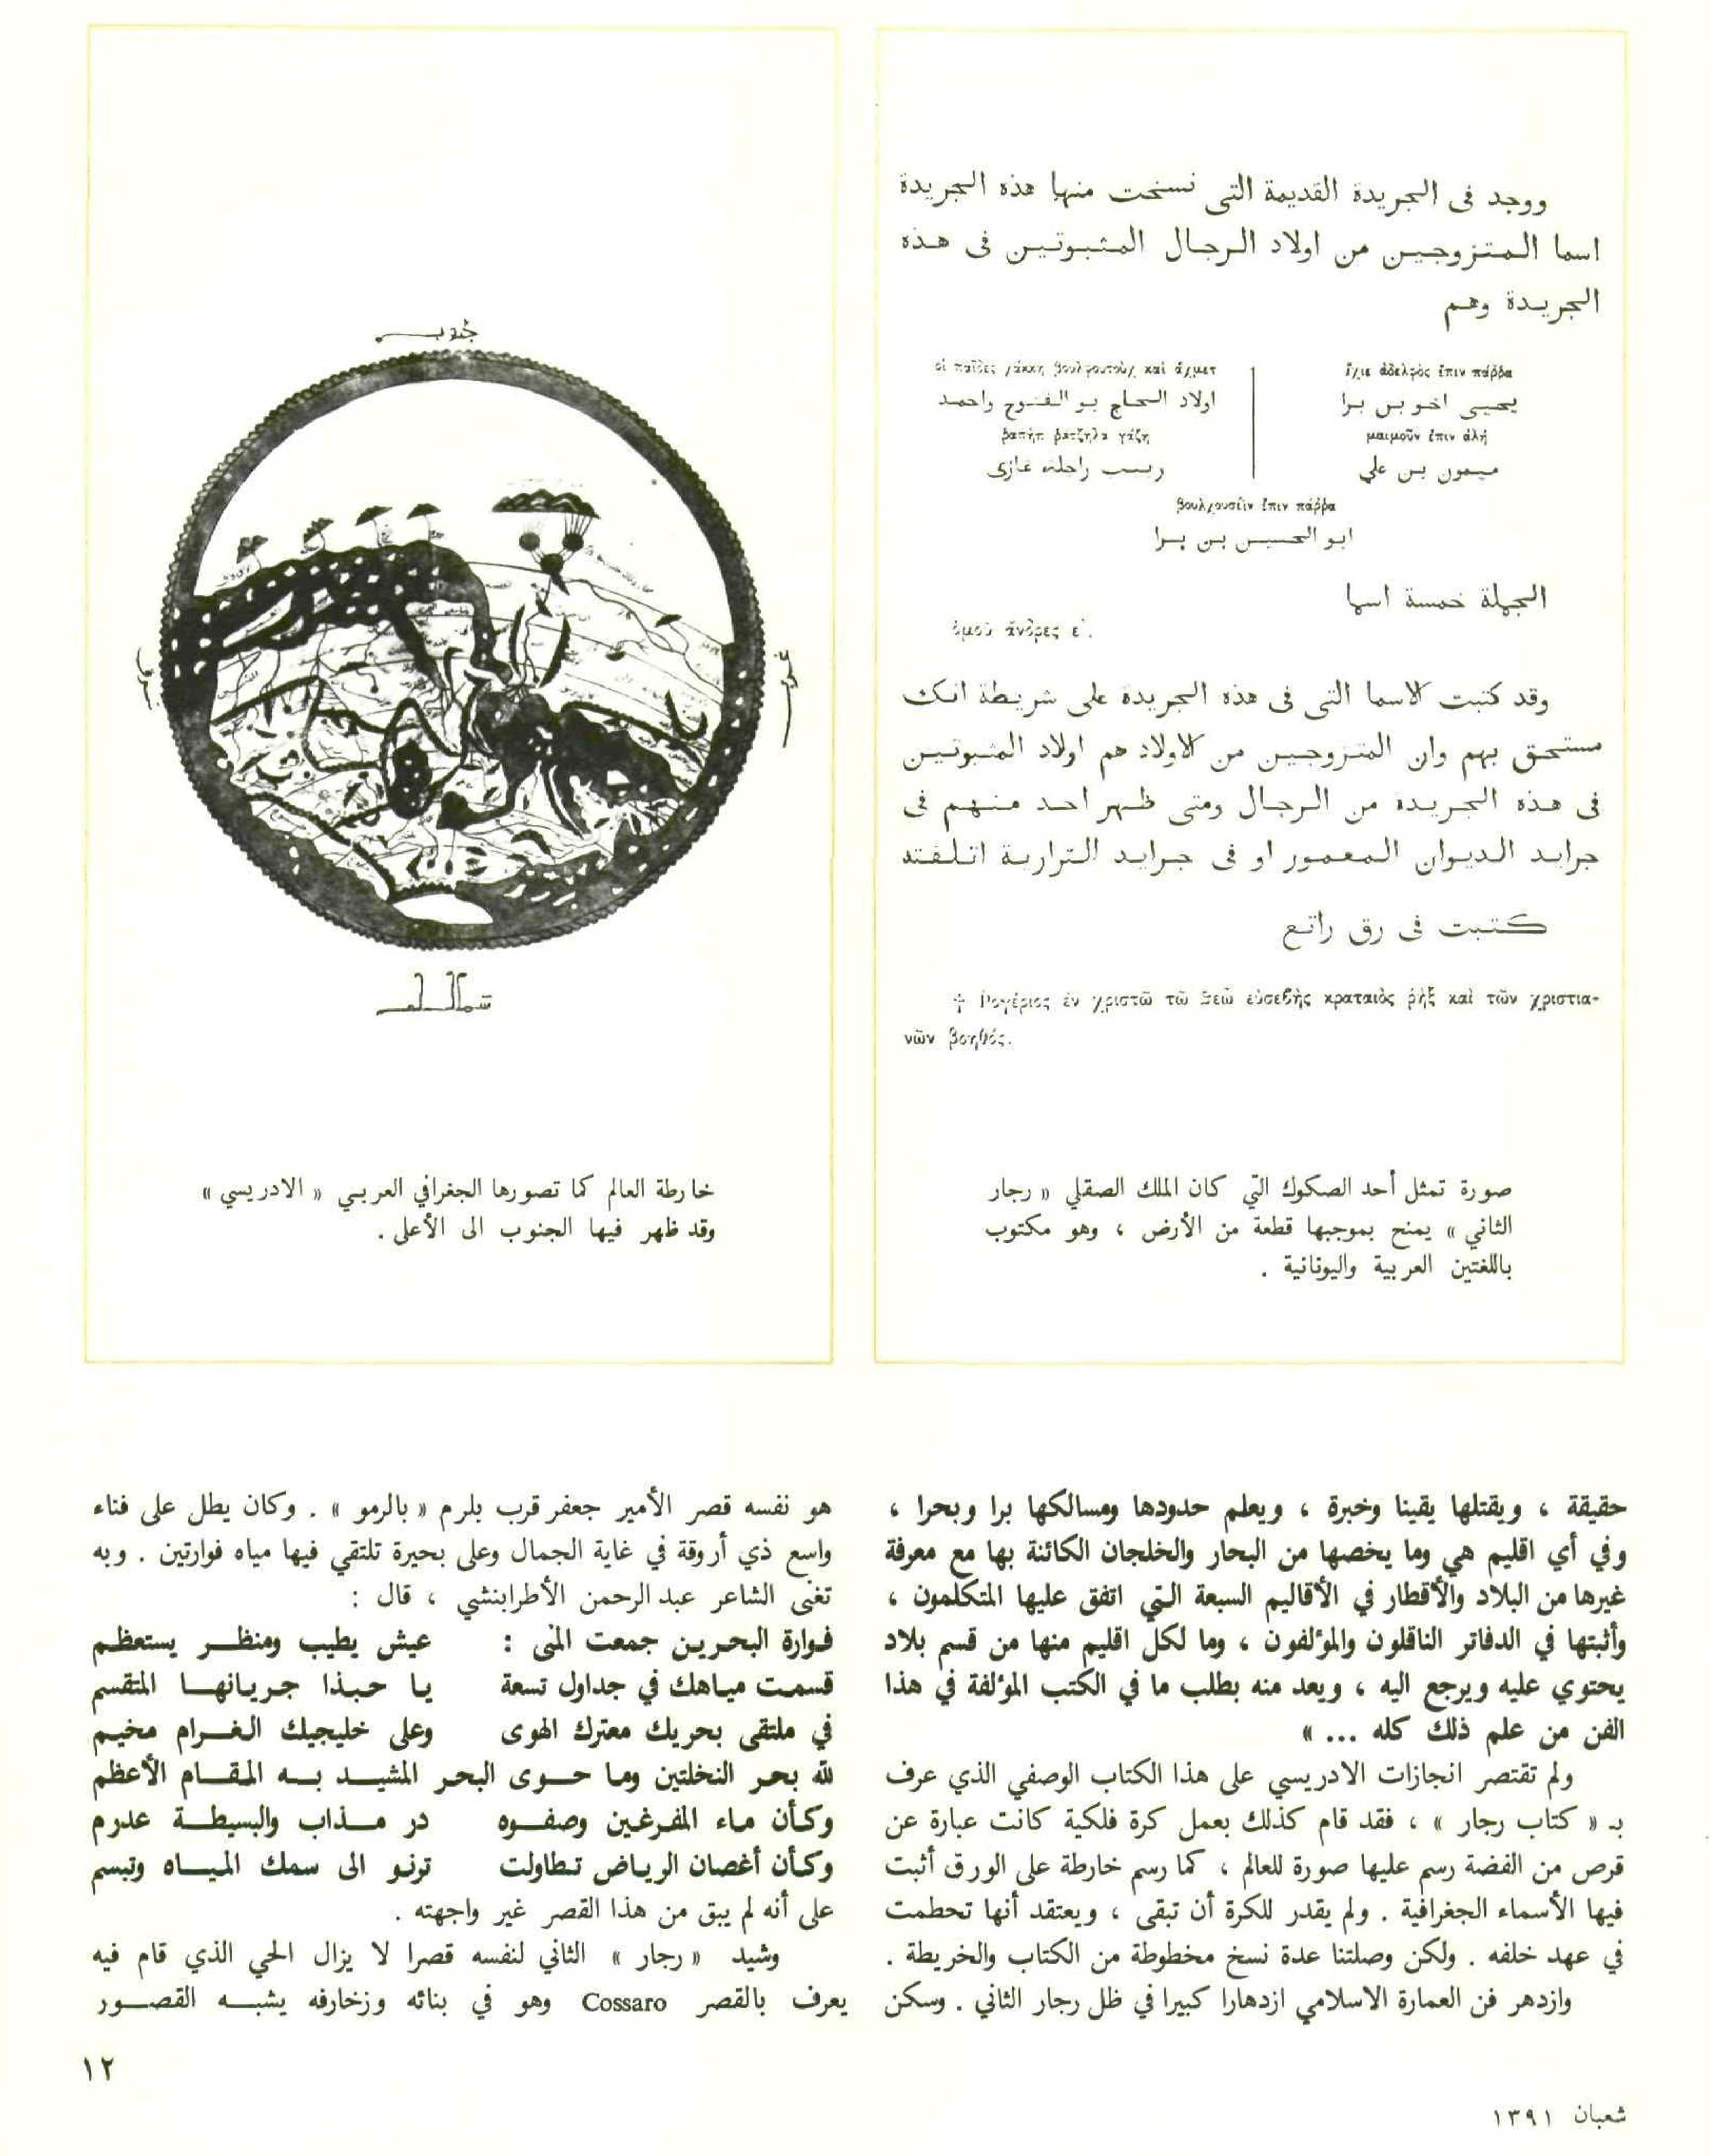 ووجد فى الجريدة القديمة التى نسخت منها هذه الجريدة
اسما المتزوجين من اولاد الرجال المثبوتين فى هذه
الجريدة وهم
ἔχιε ἀδελφὸς ἔπιν πάρρα
يحيى اخو بن برا
μαιμοῦν ἔπιν ἀλή
ميمون بن علي
οἱ παῖδες χάκκη βουλφουτοὺχ καὶ ἄχμετ
اولاد الحاج بو الفتوح واحمد
ربيب راحلة غازى
βουλχουσέιν ἔπιν πάρρα
ابو الحسين بن برا
الجملة خمسة اسما
ὁμοῦ ἄνδρες ε΄.
وقد كتبت الاسما التى فى هذه الجريدة على شريطة انك
مستحق بهم وان المتزوجين من الاولاد هم اولاد المثبوتين
فى هذه الجريدة من الرجال ومتى ظهر احد منهم فى
جرايد الديوان المعمور او فى جرايد الترارية اتلفته
كتبت فى رق راتع
† Ῥογέριος ἐν χριστῶ τῶ θεῶ εὐσεβὴς κραταιὸς ῥὴξ καὶ τῶν χριστια-
νῶν βοηθός.
صورة تمثل أحد الصكوك التي كان الملك الصقلي « رجار
الثاني » يمنح بموجبها قطعة من الأرض ، وهو مكتوب
باللغتين العربية واليونانية .
جنوب
غرب
شمال
خارطة العالم كما تصورها الجغرافي العربي « الادريسي »
وقد ظهر فيها الجنوب الى الأعلى .
حقيقة ، ويقتلها يقينا وخبرة ، ويعلم حدودها ومسالكها برا وبحرا ،
وفي أي اقليم هي وما يخصها من البحار والخلجان الكائنة بها مع معرفة
غيرها من البلاد والأقطار في الأقاليم السبعة التي اتفق عليها المتكلمون ،
وأثبتها في الدفاتر الناقلون والمؤلفون ، وما لكل اقليم منها من قسم بلاد
يحتوي عليه ويرجع اليه ، ويعد منه بطلب ما في الكتب المؤلفة في هذا
الفن من علم ذلك كله ... »
ولم تقتصر انجازات الادريسي على هذا الكتاب الوصفي الذي عرف
بـ « كتاب رجار » ، فقد قام كذلك بعمل كرة فلكية كانت عبارة عن
قرص من الفضة رسم عليها صورة للعالم ، كما رسم خارطة على الورق أثبت
فيها الأسماء الجغرافية . ولم يقدر للكرة أن تبقى ، ويعتقد أنها تحطمت
في عهد خلفه . ولكن وصلتنا عدة نسخ مخطوطة من الكتاب والخريطة .
وازدهر فن العمارة الاسلامي ازدهارا كبيرا في ظل رجار الثاني . وسكن
هو نفسه قصر الأمير جعفر قرب بلرم « بالرمو » . وكان يطل على فناء
واسع ذي أروقة في غاية الجمال وعلى بحيرة تلتقي فيها مياه فوارتين . وبه
تغنى الشاعر عبد الرحمن الأطرابنشي ، قال :
فوارة البحرين جمعت المنى : عيش يطيب ومنظر يستعظم
قسمت مياهك في جداول تسعة يا حبذا جريانها المتقسم
في ملتقى بحريك معترك الهوى وعلى خليجيك الغرام مخيم
لله بحر النخلتين وما حوى البحر المشيد به المقام الأعظم
وكأن ماء المفرغين وصفوه در مذاب والبسيطة عدرم
وكأن أغصان الرياض تطاولت ترنو الى سمك المياه وتبسم
على أنه لم يبق من هذا القصر غير واجهته .
وشيد « رجار » الثاني لنفسه قصرا لا يزال الحي الذي قام فيه
يعرف بالقصر Cossaro وهو في بنائه وزخارفه يشبه القصور
١٢
شعبان ١٣٩١